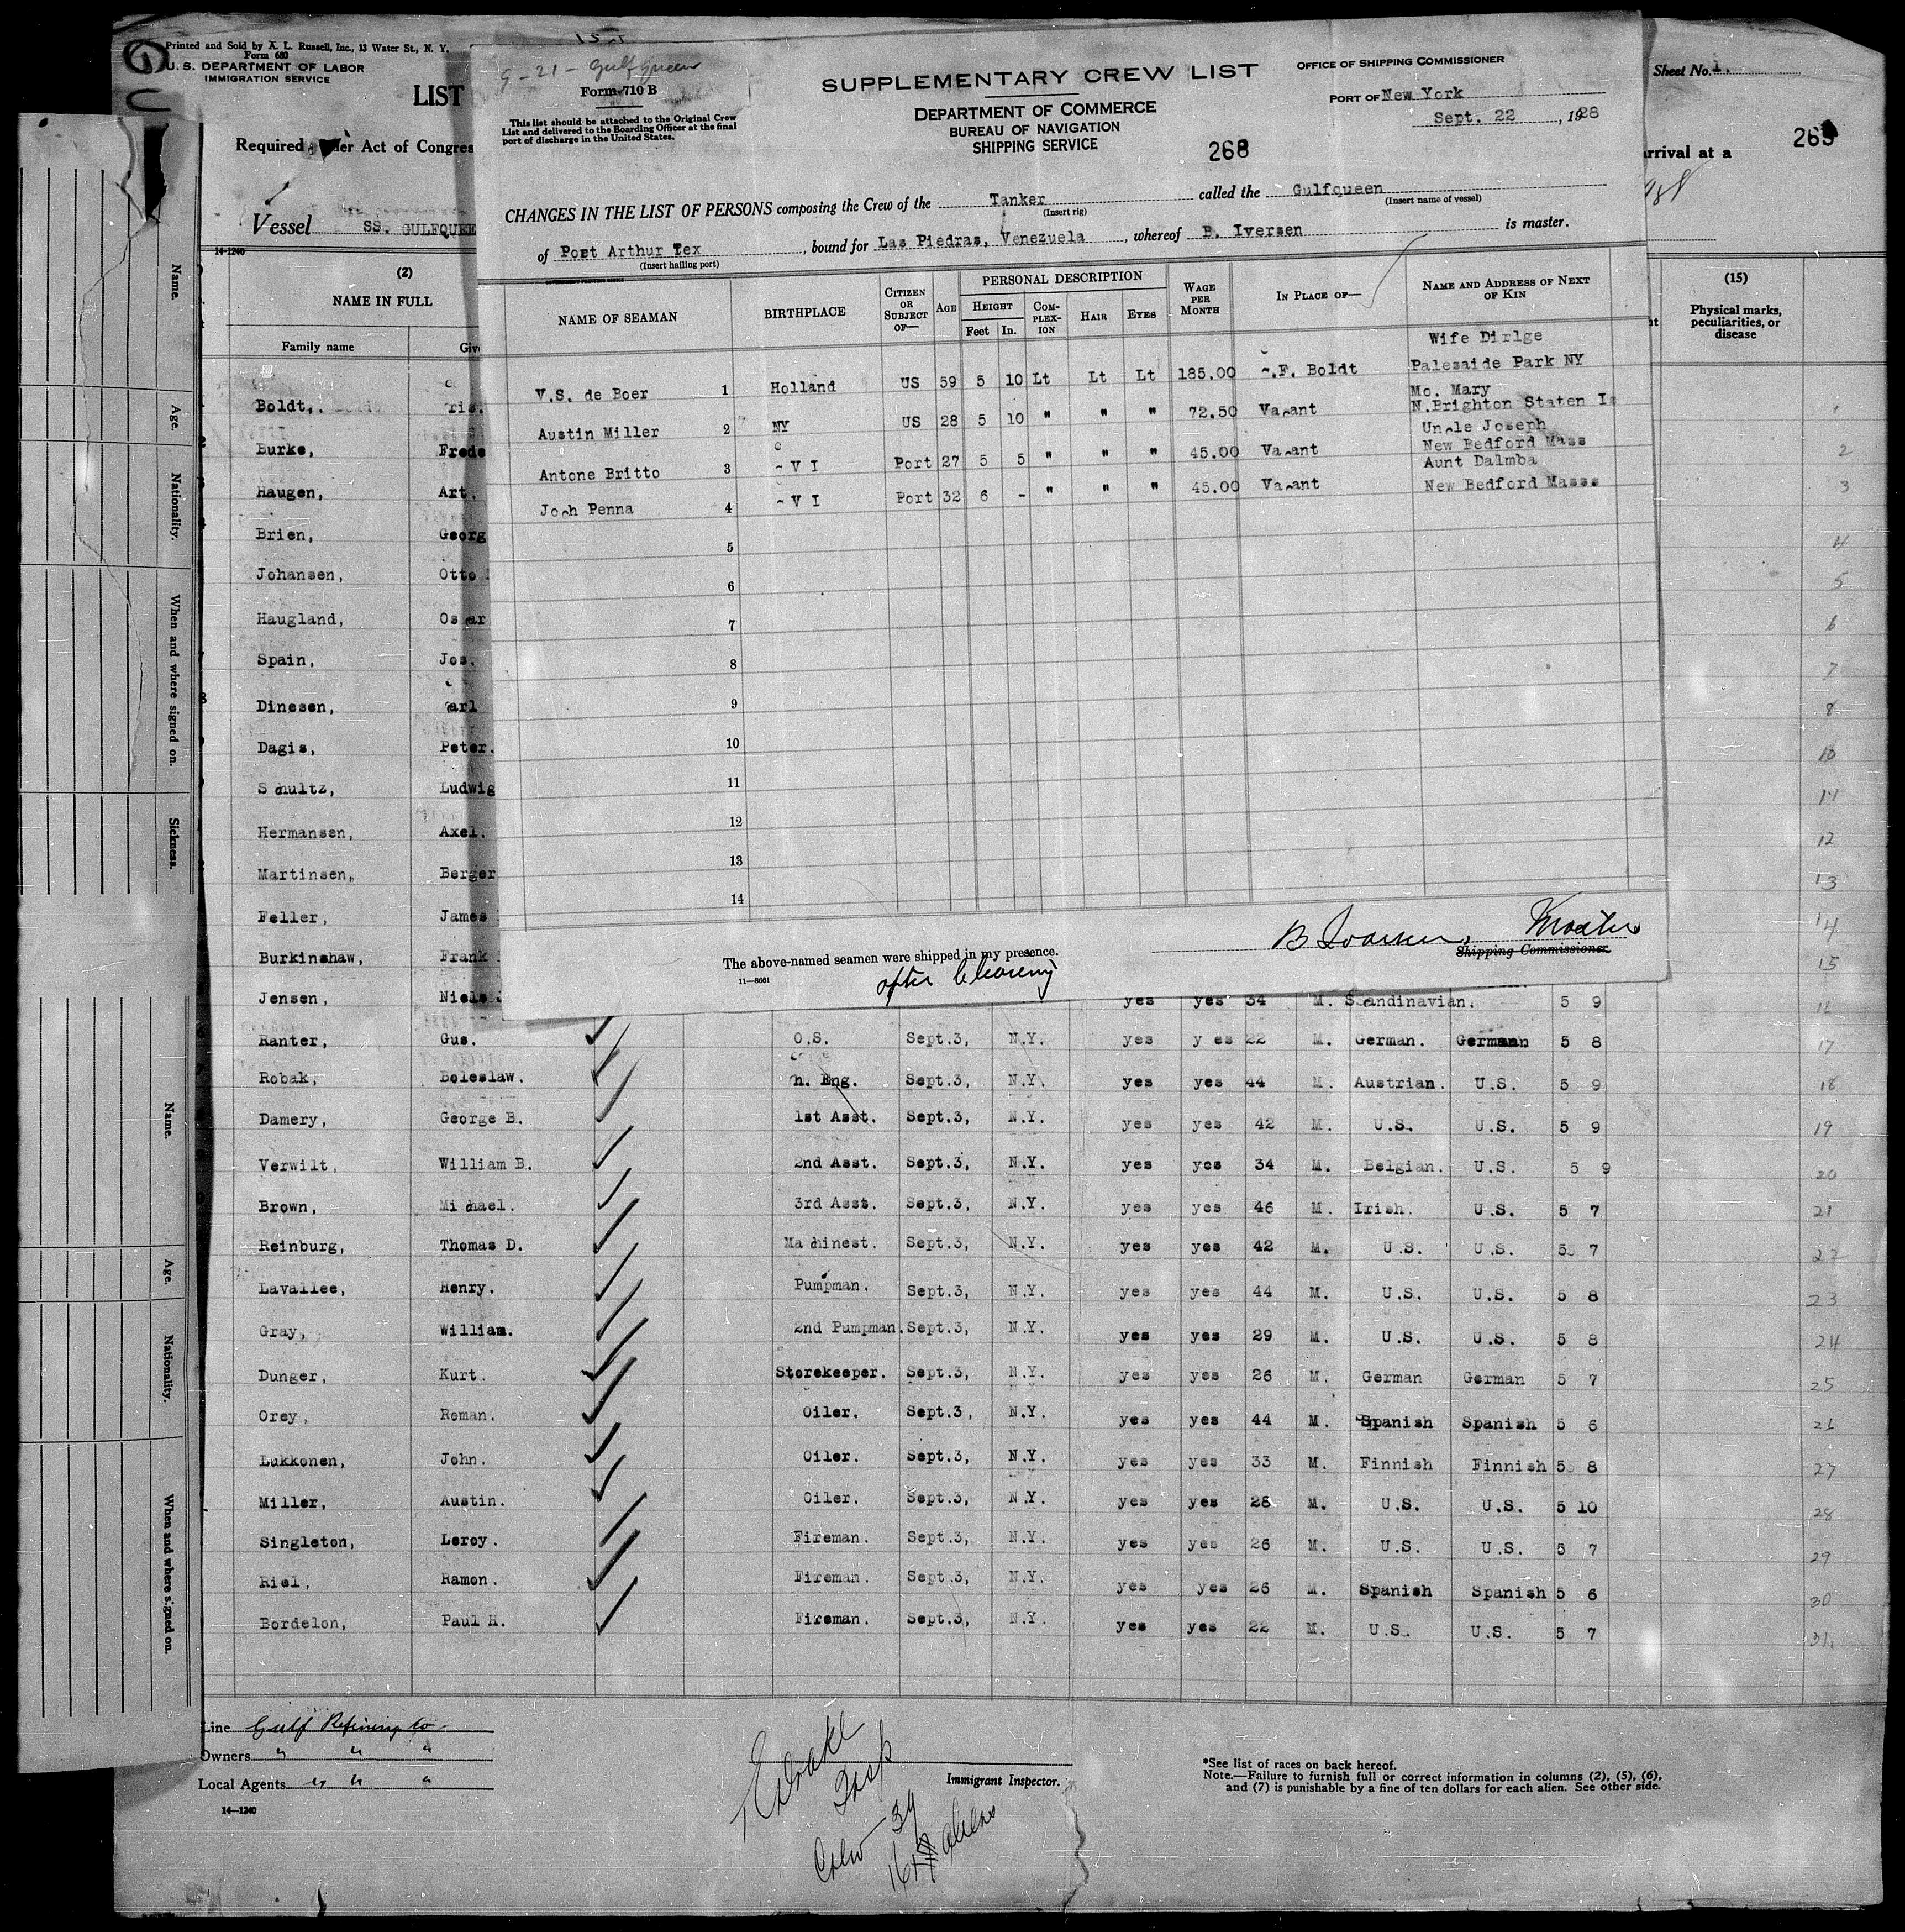 Printed and Sold by A. L. Russell, Inc., 13 Water St., N. Y.
Form 680
U. S. DEPARTMENT OF LABOR
IMMIGRATION SERVICE
LIST
Required under Act of Congres
Vessel SS. GULFQUEE
14-1240
(2)
NAME IN FULL
Family name
Giv
Sheet No. 1.
rrival at a
269
(15)
Physical marks, peculiarities, or disease
9-21- Gulfqueen
Form 710 B
This list should be attached to the Original Crew
List and delivered to the Boarding Officer at the final
port of discharge in the United States.
SUPPLEMENTARY CREW LIST
DEPARTMENT OF COMMERCE
BUREAU OF NAVIGATION
SHIPPING SERVICE
268
OFFICE OF SHIPPING COMMISSIONER
PORT OF New York
Sept. 22, 1928
CHANGES IN THE LIST OF PERSONS composing the Crew of the Tanker called the Gulfqueen
(Insert rig) (Insert name of vessel)
of Port Arthur Tex, bound for Las Piedras, Venezuela, whereof B. Iversen is master.
(Insert hailing port)
NAME OF SEAMAN BIRTHPLACE CITIZEN OR SUBJECT OF— AGE PERSONAL DESCRIPTION HEIGHT Feet In. COMPLEXION HAIR EYES WAGE PER MONTH IN PLACE OF— NAME AND ADDRESS OF NEXT OF KIN
Wife Dirlge
V.S. de Boer 1 Holland US 59 5 10 Lt Lt Lt 185.00 C.F. Boldt Palesaide Park NY
Mo. Mary
Austin Miller 2 NY US 28 5 10 " " " 72.50 Vacant N.Brighton Staten Is
Uncle Joseph
Antone Britto 3 C V I Port 27 5 5 " " " 45.00 Vacant New Bedford Mass
Aunt Dalmba
Joch Penna 4 C V I Port 32 6 - " " " 45.00 Vacant New Bedford Masss
5
6
7
8
9
10
11
12
13
14
The above-named seamen were shipped in my presence.
after clearing
B Iversen, Master
Shipping Commissioner.
11—8661
Boldt,
Burke, Frede
Haugen, Art.
Brien, Georg
Johansen, Otto
Haugland, Oscar
Spain, Jos.
Dinesen, Carl
Dagis, Peter.
Schultz, Ludwig
Hermansen, Axel.
Martinsen, Berger
Feller, James
Burkinshaw, Frank
Jensen, Niels yes yes 34 M. Scandinavian. 5 9
Ranter, Gus. O.S. Sept.3, N.Y. yes yes 22 M. German. German 5 8 17
Robak, Boleslaw. Ch. Eng. Sept.3, N.Y. yes yes 44 M. Austrian. U.S. 5 9 18
Damery, George B. 1st Asst. Sept.3, N.Y. yes yes 42 M. U.S. U.S. 5 9 19
Verwilt, William B. 2nd Asst. Sept.3, N.Y. yes yes 34 M. Belgian. U.S. 5 9 20
Brown, Michael. 3rd Asst. Sept.3, N.Y. yes yes 46 M. Irish. U.S. 5 7 21
Reinburg, Thomas D. Machinest. Sept.3, N.Y. yes yes 42 M. U.S. U.S. 5 7 22
Lavallee, Henry. Pumpman. Sept.3, N.Y. yes yes 44 M. U.S. U.S. 5 8 23
Gray, William. 2nd Pumpman. Sept.3, N.Y. yes yes 29 M. U.S. U.S. 5 8 24
Dunger, Kurt. Storekeeper. Sept.3, N.Y. yes yes 26 M. German German 5 7 25
Orey, Roman. Oiler. Sept.3, N.Y. yes yes 44 M. Spanish Spanish 5 6 26
Lukkonen, John. Oiler. Sept.3, N.Y. yes yes 33 M. Finnish Finnish 5 8 27
Miller, Austin. Oiler. Sept.3, N.Y. yes yes 28 M. U.S. U.S. 5 10 28
Singleton, Leroy. Fireman. Sept.3, N.Y. yes yes 26 M. U.S. U.S. 5 7 29
Riel, Ramon. Fireman. Sept.3, N.Y. yes yes 26 M. Spanish Spanish 5 6 30
Bordelon, Paul H. Fireman. Sept.3, N.Y. yes yes 22 M. U.S. U.S. 5 7 31
Line Gulf Refining Co
Owners " " "
Local Agents " " "
14—1240
Insp
Immigrant Inspector.
Crew - 39
aliens
*See list of races on back hereof.
Note.—Failure to furnish full or correct information in columns (2), (5), (6),
and (7) is punishable by a fine of ten dollars for each alien. See other side.
Name.
Age.
Nationality.
When and where signed on.
Sickness.
Name.
Age.
Nationality.
When and where signed on.